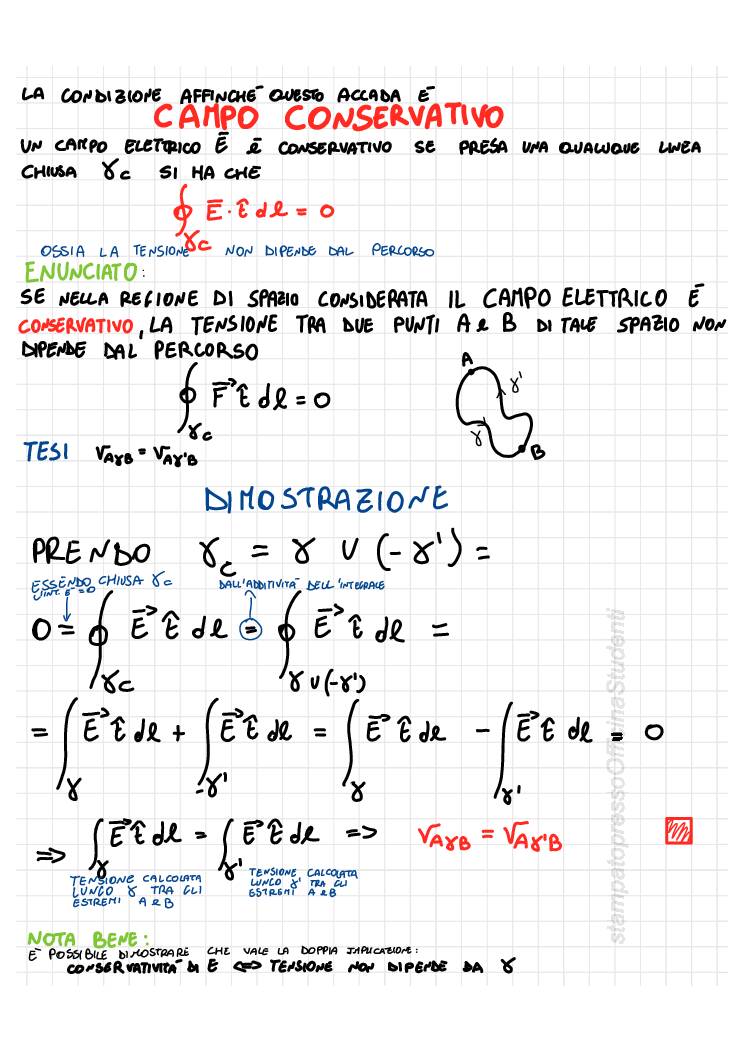 LA CONDIZIONE AFFINCHÉ QUESTO ACCADA È
CAMPO CONSERVATIVO
UN CAMPO ELETTRICO Ē È CONSERVATIVO SE PRESA UNA QUALUQUE LINEA
CHIUSA γc SI HA CHE
∮γc Ē · t̂ dl = 0
OSSIA LA TENSIONE NON DIPENDE DAL PERCORSO
ENUNCIATO:
SE NELLA REGIONE DI SPAZIO CONSIDERATA IL CAMPO ELETTRICO É
CONSERVATIVO, LA TENSIONE TRA DUE PUNTI A e B DI TALE SPAZIO NON
DIPENDE DAL PERCORSO
∮γc F⃗ t̂ dl = 0
A
γ'
γ
B
TESI VAγB = VAγ'B
DIMOSTRAZIONE
PRENDO γc = γ ∪ (-γ') =
ESSENDO CHIUSA γc
L'INT. È = 0
DALL'ADDITIVITÀ DELL'INTEGRALE
0 = ∮γc E⃗ t̂ dl = ∮γ∪(-γ') E⃗ t̂ dl =
= ∫γ E⃗ t̂ dl + ∫-γ' E⃗ t̂ dl = ∫γ E⃗ t̂ dl - ∫γ' E⃗ t̂ dl = 0
=> ∫γ E⃗ t̂ dl = ∫γ' E⃗ t̂ dl => VAγB = VAγ'B
TENSIONE CALCOLATA
LUNGO γ TRA GLI
ESTREMI A e B
TENSIONE CALCOLATA
LUNGO γ' TRA GLI
ESTREMI A e B
NOTA BENE:
E' POSSIBILE DIMOSTRARE CHE VALE LA DOPPIA IMPLICAZIONE:
CONSERVATIVITÀ DI E <=> TENSIONE NON DIPENDE DA γ
stampatopressoOfficinaStudenti